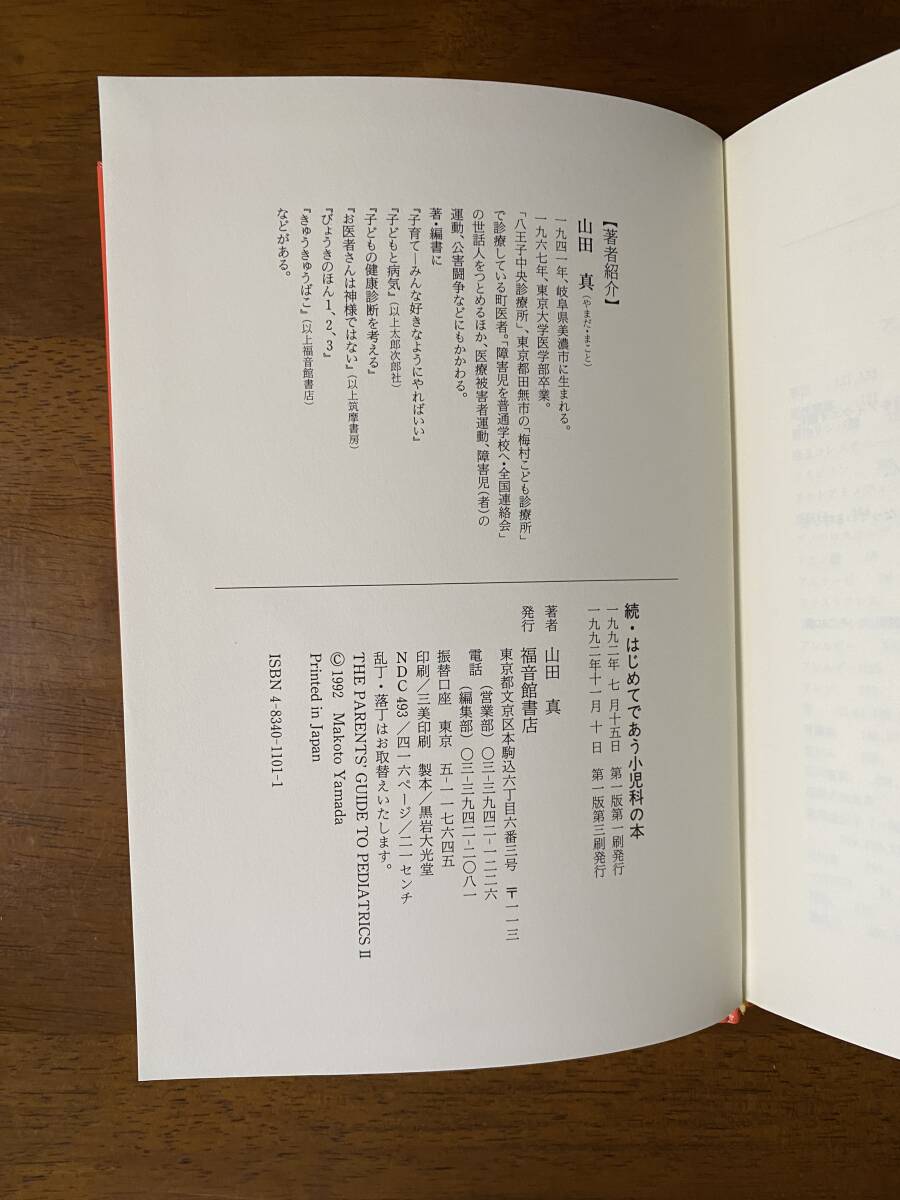 【著者紹介】
山田 真(やまだ・まこと)
一九四一年、岐阜県美濃市に生まれる。
一九六七年、東京大学医学部卒業。
「八王子中央診療所」、東京都田無市の「梅村こども診療所」
で診療している町医者。「障害児を普通学校へ・全国連絡会」
の世話人をつとめるほか、医療被害者運動、障害児(者)の
運動、公害闘争などにもかかわる。
著・編書に
『子育て―みんな好きなようにやればいい』
『子どもと病気』(以上太郎次郎社)
『子どもの健康診断を考える』
『お医者さんは神様ではない』(以上筑摩書房)
『びょうきのほん1、2、3』
『きゅうきゅうばこ』(以上福音館書店)
などがある。
続・はじめてであう小児科の本
一九九二年 七 月十五日 第一版第一刷発行
一九九二年十一月 十 日 第一版第三刷発行
著者 山田 真
発行 福音館書店
東京都文京区本駒込六丁目六番三号 〒一一三
電話 (営業部) 〇三-三九四二-一二二六
(編集部) 〇三-三九四二-二〇八一
振替口座 東京 五-一一七六四五
印刷/三美印刷 製本/黒岩大光堂
NDC 493/四一六ページ/二一センチ
乱丁・落丁はお取替えいたします。
THE PARENTS' GUIDE TO PEDIATRICS II
© 1992 Makoto Yamada
Printed in Japan
ISBN 4-8340-1101-1